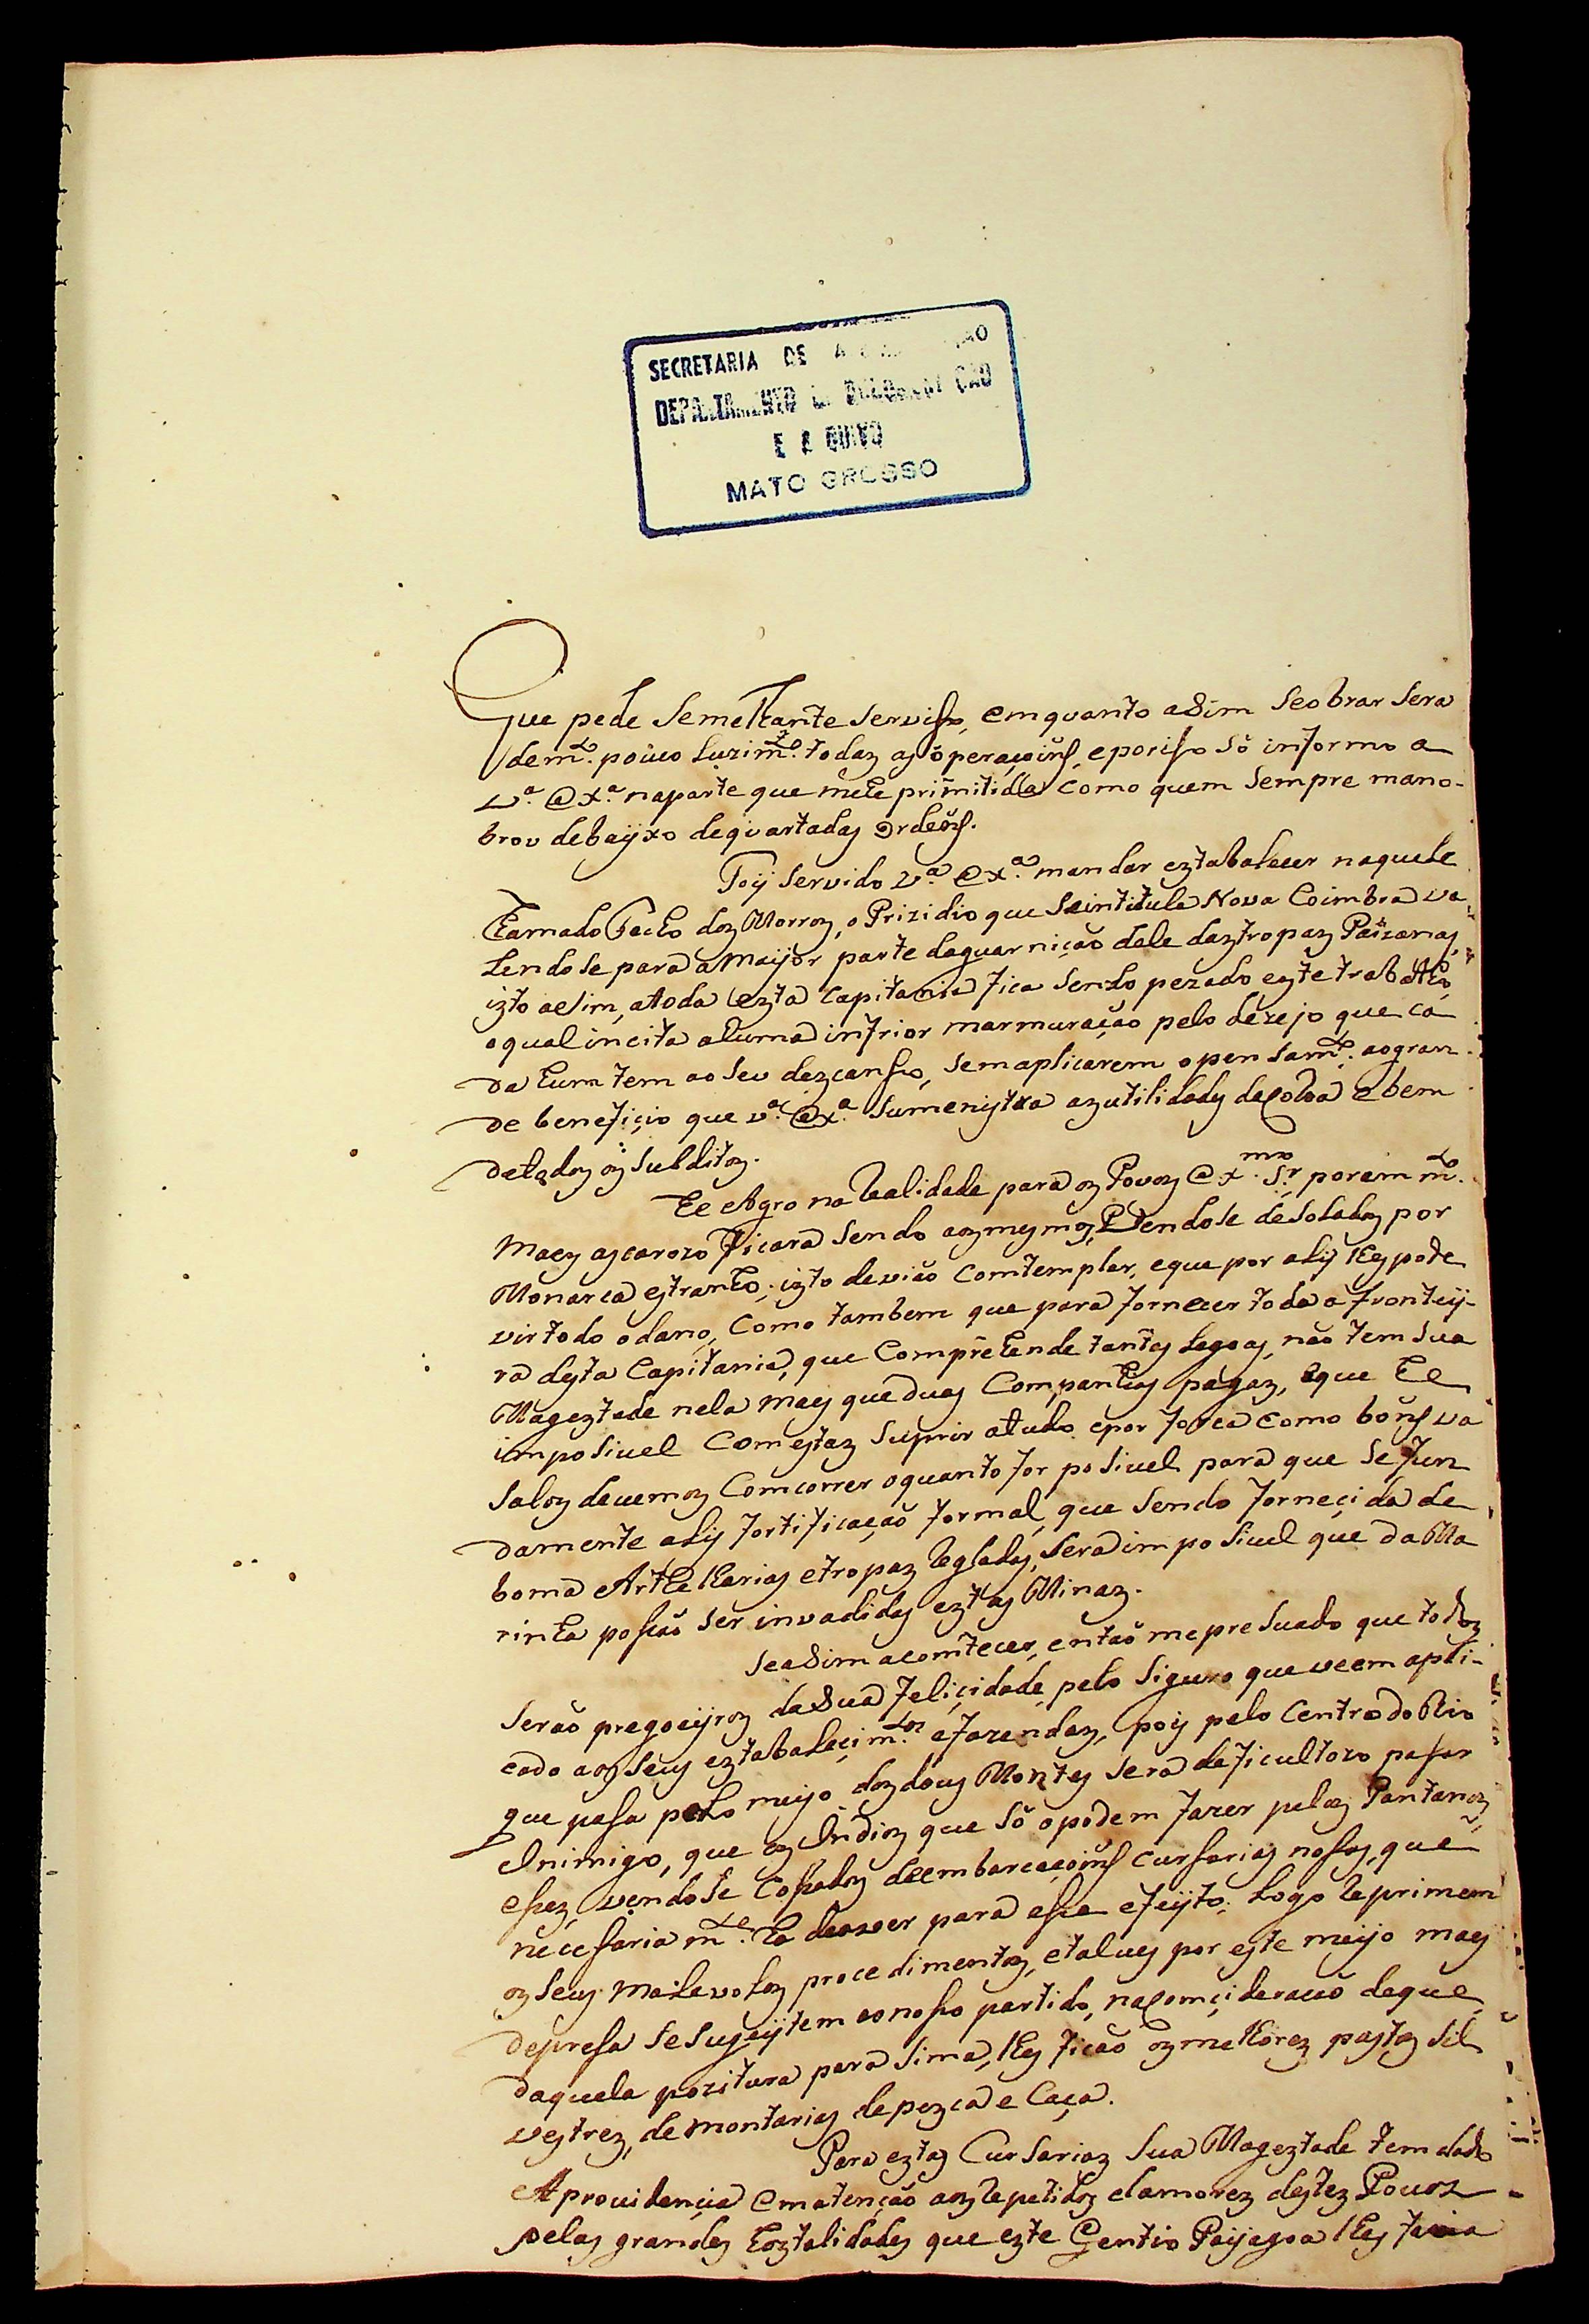 SECRETARIA DE
DEPARTAMENTO
MATO GROSSO
Que pede Semelhante Servisso, emquanto asim Seobrar Sera
dem.to pouco Luzim.to todaz as operaçoins, eporisso Só informo a
V.a Ex.a naparte que mehe primitida Como quem Sempre mano-
brou debaijxo dequartadas Ordens.
Foij Servido V.a Ex.a mandar eztabalecer naquele
chamado Fecho doz Morroz, o Prizidio que Seintitula Nova Coimbra va
Lendose para a maijor parte daguarnição dele daztropaz Paizanas,
izto asim, atoda ezta Capitania fica Sendo pezado ezte trabalho,
oqual incita aluma intrior marmuração pelo dezejo que ca
da hum tem ao Seu dezcansso, Semaplicarem opensam.to aogran
de beneficio que V.a Ex.a Sumenistra azutilidades da e bem
detodoz os Subditoz.
He Agro na Realidade para oz Povoz Ex.mo S.r porem m.to
Maez ascarozo Ficara Sendo aozmesmoz, Vendose desoladoz por
Monarca estranho; izto devião Comtemplar, eque por alij lhes pode
vir todo odano, Como tambem que para fornecer toda a fronteij-
ra desta Capitania, que Comprehende tantas Legoas, não tem Sua
Mageztade nela mais que duas Companhias pagaz, eque he
imposivel Comestaz Suprir atudo, epor força como bons va
Saloz devemoz Comcorrer oquanto for posivel para que Se fun
damente alij fortificação formal, que Sendo forneçida de
boma Artelharias etropaz Regladas, Sera imposivel que da Ma
rinha possão Ser invadidas eztas Minaz.
Seasim acomtecer, então mepresuado que todoz
Serão pregoeijroz daSua feliçidade, pelo Siguro que veem apli-
cado aoz Seus eztabaleçim.tos efazendaz, poiz pelo Centro do Rio
que pasa pelo meijo dozdous Montes Sera deficultozo pasar
oInimigo, que oz Indioz que Só opodem fazer peloz Pantanoz,
essez, vendose Cossadoz deembarcaçoins curssarias nossas, que
necessariam.te ha dehaver para esse efeijto, Logo Reprimem
oz Seus malevoloz procedimentoz, etalves por este meijo mais
depressa Sesugeijtem aonosso partido, naComçideração deque
daquela pozitura para Sima, lhes ficão ozmelhorez pastoz Sil
vestrez, de montarias depezca e Caça.
Para eztas Cursariaz Sua Mageztade tem dado
A providençia ematenção aoz Repetidoz clamorez destez Povoz
pelas grandes hoztalidades que ezte Gentio Paijagoa lhes fazia